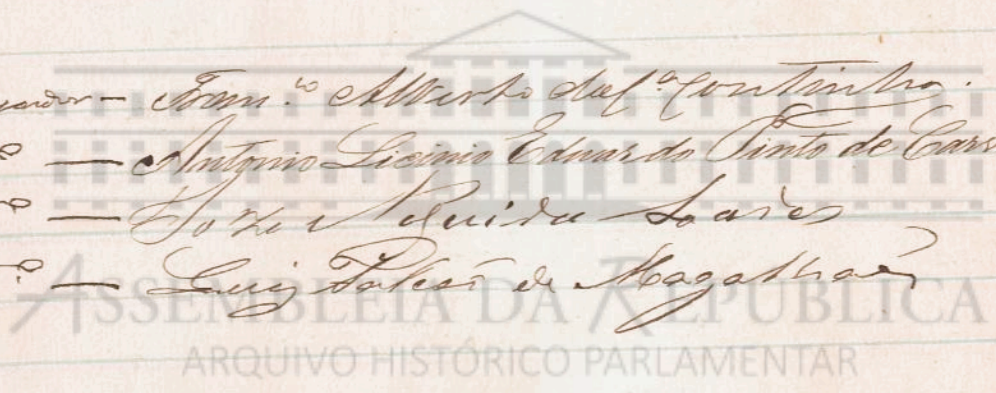 Fran.co Alberto da C.ª Coutinho.
Antonio Licinio Eduardo Pinto de
Soares
Luiz Falcão de Magalhães
ASSEMBLEIA DA REPÚBLICA
ARQUIVO HISTÓRICO PARLAMENTAR